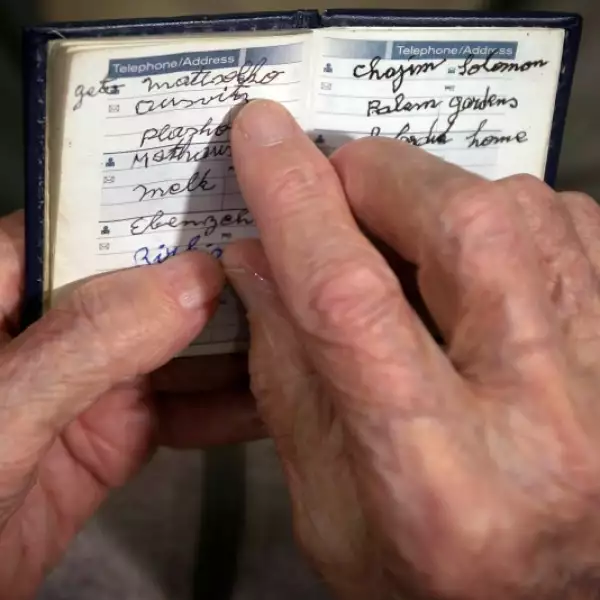 Telephone/Address
geto Mattseho
Ausvitz
Plazho
Mathaus
Melk
Ebenzeh
Telephone/Address
Chajim Solomon
Palem gardens
home